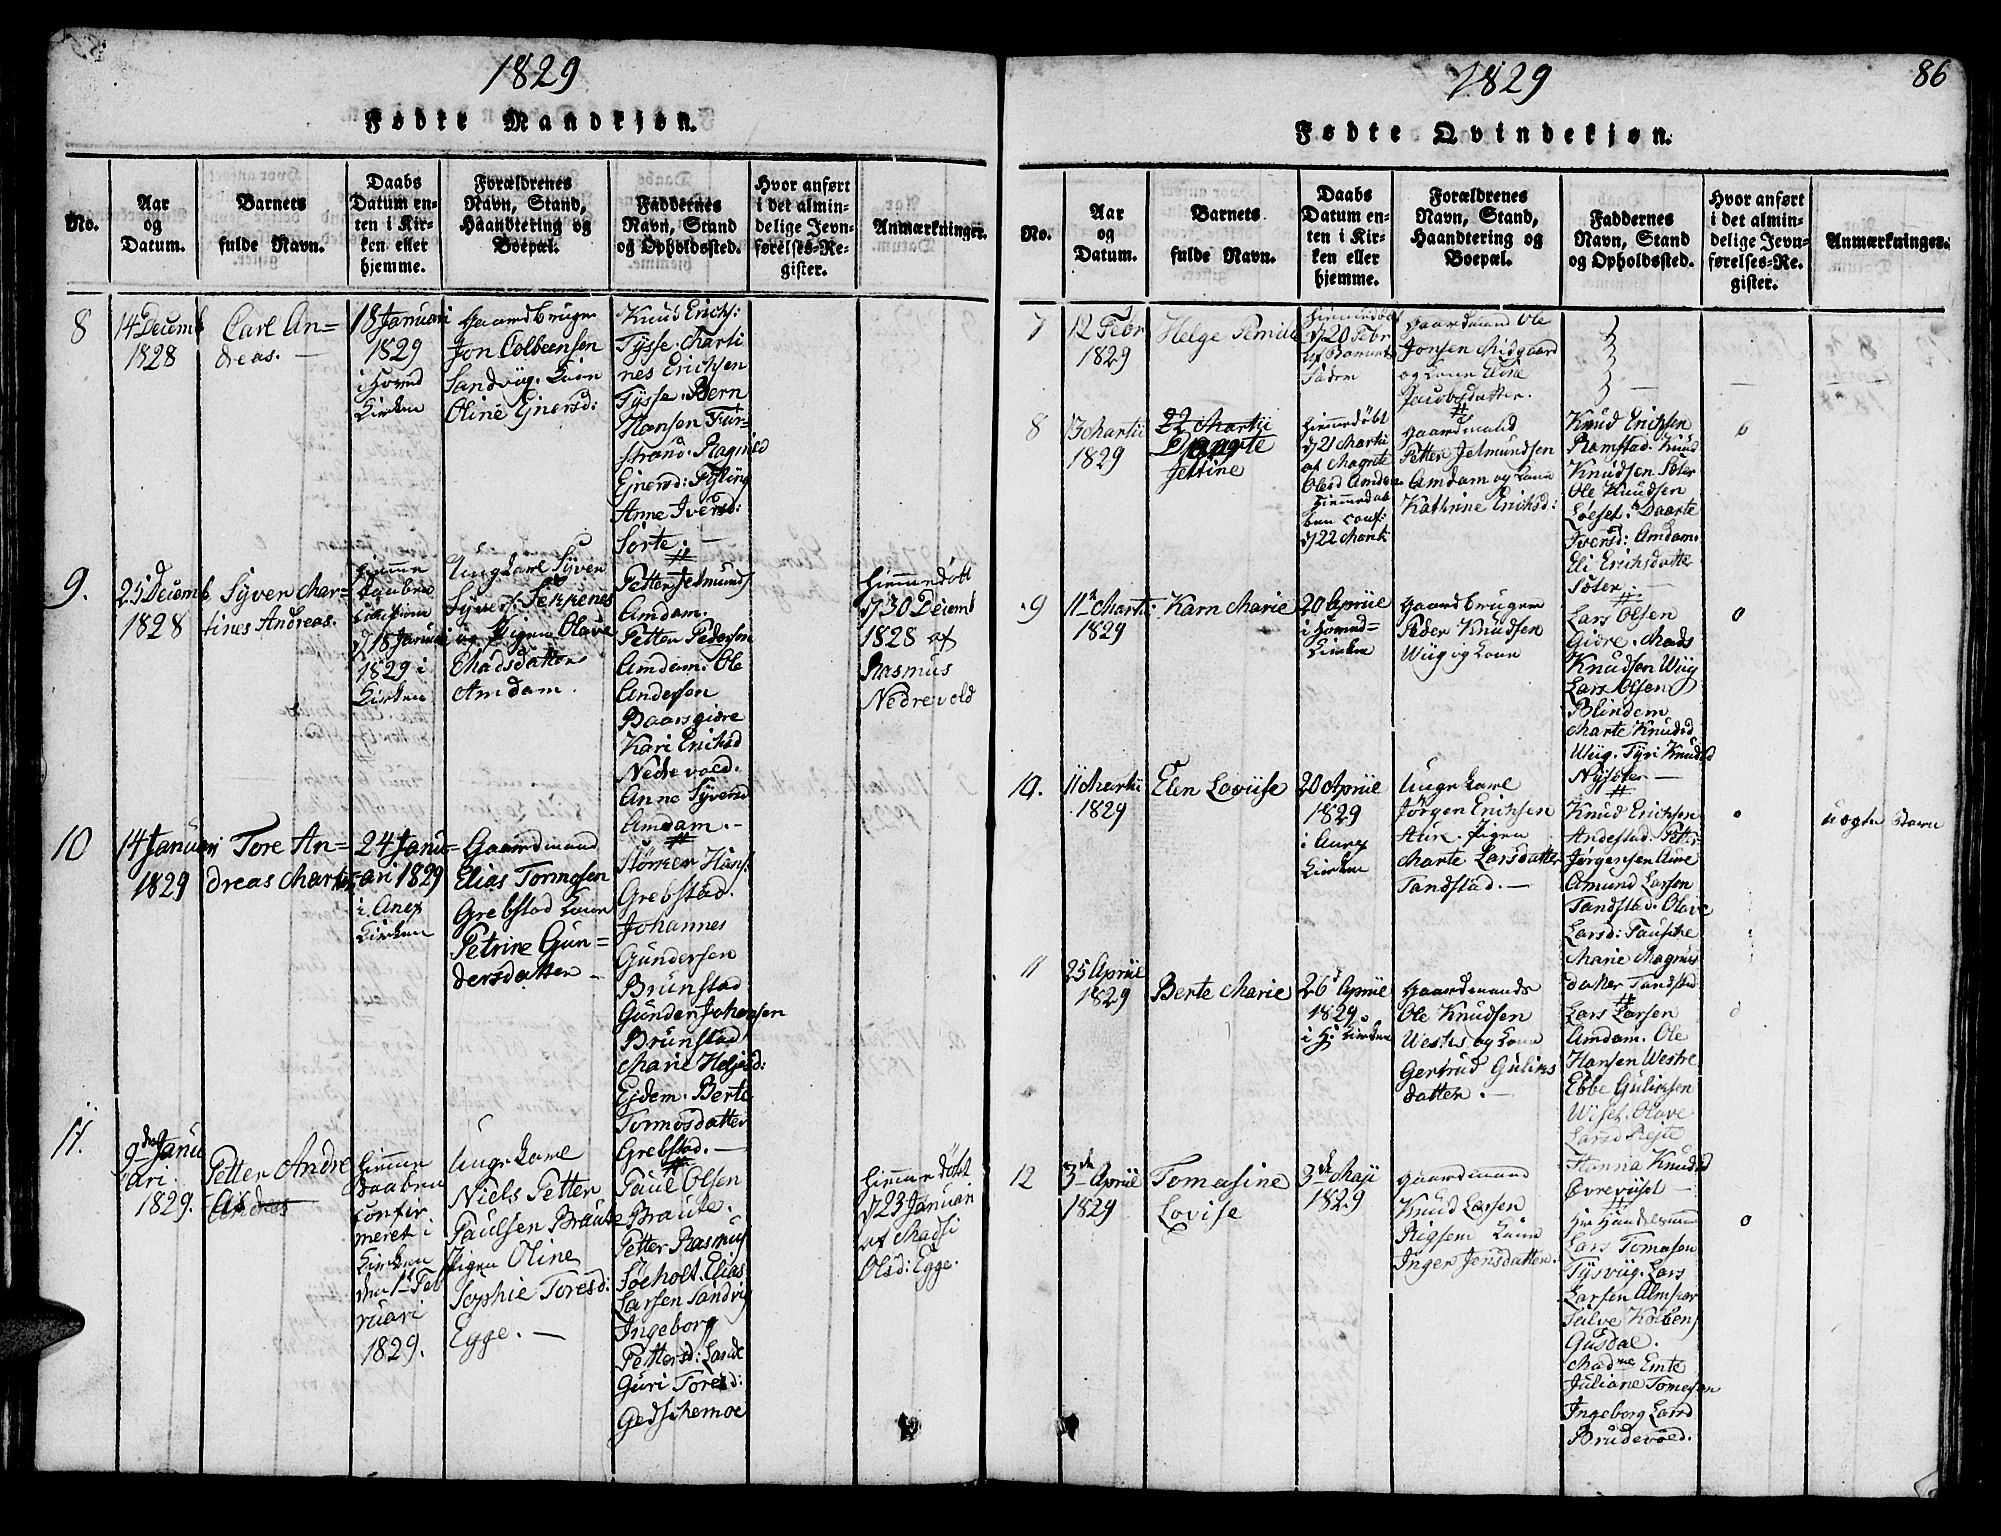 1829
Fødte Mandkjøn.
No.
Aar
og
Datum.
Barnets
fulde Navn.
Daabs
Datum en-
ten i Kir-
ken eller
hjemme.
Forældrenes
Navn, Stand,
Haandtering og
Boepæl.
Faddernes
Navn, Stand
og Opholdssted.
Hvor anført
i det almin-
delige Jevn-
førelses-Re-
gister.
Anmærkninger.
8
14 Decemb
1828
Carl An=
dreas. —
18 Januari
1829
i Hoved
Kirken
Gaardbruger
Jon Colbeensen
Sandvüg. Kone
Oline Ejnersd:
Knud Erichs:
Tysse. Marti
nes Erichsen
Tysse. Bern
Hansen Fur-
strand. Ragnild
Ejnersd:
Anne Iversd:
Sorte. —
9.
25 Decemb
1828
Syver Mar=
tines Andreas.
hiemme
Daaben
d 18 Januari
1829 i
Kirken
Ungkarl Syver
Syvers. Sexnes
og Pigen Olave
Madsdatter
Amdam.
Petter Jetmunds.
Amdam.
Petter Pedersen
Amdam. Ole
Andersen
Baarsgiøre
Kari Erichsd
Nedrevold.
Anne Syversd
Amdam. —
hiemmedøbt
d 30 Decemb
1828 af
Rasmus
Nedrevold
10
14 Januari
1829
Tore An=
dreas Martin
24 Janu=
ari 1829
i Anex
Kirken
Gaardmand
Elias Tormosen
Grebstad Kone
Petrine Gun=
dersdatter —
Størker Hans.
Grebstad.
Johannes
Gundersen
Brunstad
Gunder Johansen
Brunstad
Marie Heljesd:
Ejdem. Berte
Tormosdatter
Grebstad. —
11.
9de Janu
ari.
1829.
Petter Andre
as
hiemme
Daaben
confir
meret i
Kirken
den 1st Feb
ruari
1829.
Ungkarl
Niels Petter
Paulsen Braute
Pigen Oline
Sophie Toresd:
Egge. —
Paul Olsen
Braute.
Petter Rasmus
Søeholt. Elias
Larsen Sandvig
Ingeborg
Pettersd: Lande
Guri Toresd:
Gedschemoe
hiemmedøbt
d 23 Januari
af Madsi
Olsd: Egge.
1829
86
Fødte Qvindekjøn.
No.
Aar
og
Datum.
Barnets
fulde Navn.
Daabs
Datum en-
ten i Kir-
ken eller
hjemme.
Forældrenes
Navn, Stand,
Haandtering og
Boepæl.
Faddernes
Navn, Stand
og Opholdssted.
Hvor anført
i det almin-
delige Jevn-
førelses-Re-
gister.
Anmærkninger.
7
12 Febr
1829
Helge Pernille
hiemmedøbt
d 20 Febr
af Barnets
Fader
Gaardmand Ole
Jonsen Midgaard
og Kone Eline
Jacobsdatter.
8
13 Martii
1829
22 Martii
Jettine
hiemmedøbt
d 21 Martii
af Magnte
Olesd Amdam
hiemmedaa
ben conf:
d 22 Marti
Gaardmand
Petter Jetmundsen
Amdam og Kone
Kathrine Erichsd:
Knud Erichsen
Ramstad. Knud
Knudsen Søter
Ole Knudsen
Løeset. Daarte
Iversd: Amdam.
Eli Erichsdatte
Søter. —
9
11 Marti:
1829
Karn Marie
20 Apriie
i Hoved=
Kirken
Gaardbruger
Peder Knudsen
Wüg og Kone
Lars Olsen
Giøre. Mads
Knudsen Wüg
Lars Olsen
Blindem
Marte Knudsd
Wüg. Tyri Knudsd
Nysæter —
10.
11 Martii
1829
Elen Lovise
20 Apriie
1829
i Anex
Kirken
Ungkarl
Jørgen Erichsen
Aure. Pigen
Marte Larsdatter
Tandstad. —
Knud Erichsen
Andestad. Petter
Jørgensen Aure
Amund Larsen
Tandstad. Olave
Larsd: Fauske
Marie Magnus
datter Tandstad
uegte Barn
11
25 Apriie
1829
Berte Marie
26 Apriie
1829.
i H: Kirken
Gaardmands
Ole Knudsen
Westre og Kone
Gertrud Guliks
datter. —
Lars Larsen
Amdam. Ole
Hansen Westre
Ebbe Guliksen
Wiset. Olave
Larsd Rejte
Hanna Knudsd
Øvrevüset —
12
3de Apriie
1829
Tomasine
Lovise
3de Maji
1829
Gaardmand
Knud Larsen
Rigsem Kone
Inger Jonsdatter.
Hr Handelsmand
Lars Tomasen
Tysvüg. Lars
Larsen Almskar
Salve Kolbens
Gusdal.
Madme Emte
Juliane Tomasen
Ingeborg Larsd
Brudevold.